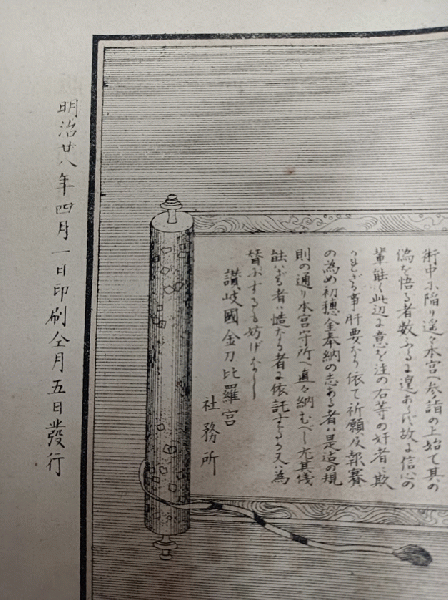 術中に陥り適々本宮へ参詣の上始て其の
偽を悟る者数ふるに遑あらず故に信心の
輩能々此辺に意を注の右等の奸者に欺
かれざる事肝要なり依て祈願及報賽
の為め初穂金奉納の志ある者は是迄の規
則の通り本宮守所へ直に納むべし尤其伐
能はざる者は慥なる者に依託するか又は為
替にするも妨げなし
讃岐國金刀比羅宮
社務所
明治廿八年四月一日印刷仝月五日發行